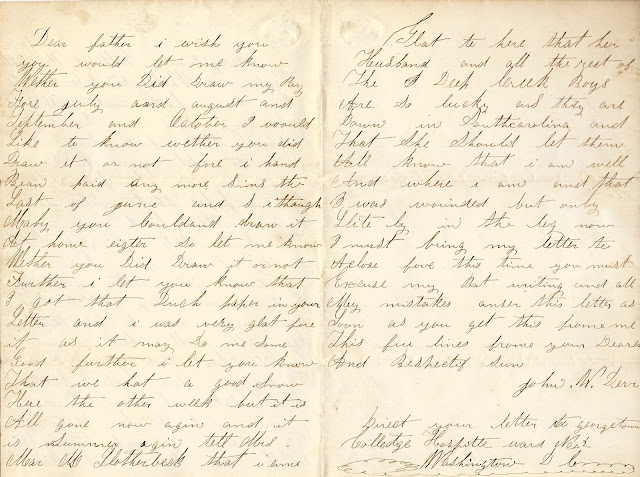 Dear father i wish you
you would let me know
Wether you Did Draw my Pay
Fore july and august and
September and October I would
Like to know wether you did
Draw it or not fore i hand
Bean paid any more Sins the
Last of june and i though
Maby you Couldand draw it
At home eigter so let me know
Wether you Did Draw it or not
Further i let you know that
I got that Duch paper in your
Letter and i was very glat fore
it as it may do me some
Good further i let you know
That we hat a good Snow
Here the other week but it is
All gone now agin and it
is Summer agin tell Mrs.
Mar M that i ame
Glat to here that her
Husband and all the rest of
The Deep Creek Boys
Are So lucky as they are
Down in Southcarolina and
That She Should let them
All know that i am well
And where i am and that
I was wounded but only
Slite ly in the leg now
I must bring my letter to
A close fore this time you must
Excuse my Bat writing and all
My mistakes anser this letter as
Soon as you get this frome me
This few lines frome your Deare
And Respectif Sun
John W. Derr
Direct your letter to georgetown
Colledge Hospitle ward No
Washington D C